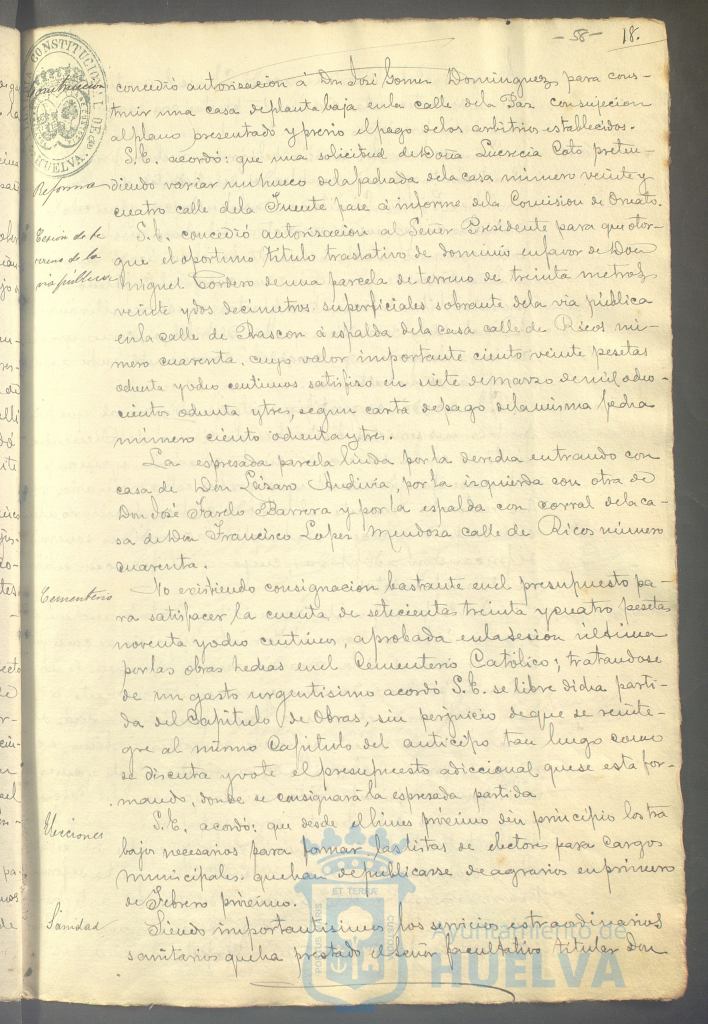 - 58 - 18.
Construccion
concedió autorizacion á Don José Gomez Dominguez, para cons-
truir una casa de planta baja en la calle de la Paz con sujecion
al plano presentado y prévio el pago de los arbitrios establecidos.
S.E. acordó: que una solicitud de Doña Lucrecia Cato preten-
Reforma
diendo variar un hueco de la fachada de la casa número veinte y
cuatro calle de la Fuente pase á informe de la Comision de Ornato.
Cesion de te
rreno de la
via publica
S.E. concedió autorizacion al Señor Presidente para que otor-
gue el oportuno título traslativo de dominio en favor de Don
Miguel Cordero de una parcela de terreno de treinta metros,
veinte y dos decimetros superficiales sobrante de la via pública
en la calle de Rascon á espalda de la casa calle de Ricos nú-
mero cuarenta, cuyo valor importante ciento veinte pesetas
ochenta y ocho centimos satisfizo en siete de marzo de mil ocho-
cientos ochenta y tres, segun carta de pago de la misma fecha
número ciento ochenta y tres.
La espresada parcela linda por la derecha entrando con
casa de Don Lázaro Andivia, por la izquierda con otra de
Don José Farelo Barrera y por la espalda con corral de la ca-
sa de Don Francisco Lopez Mendoza calle de Ricos número
cuarenta.
Cementerio
No existiendo consignacion bastante en el presupuesto pa-
ra satisfacer la cuenta de setecientas treinta y cuatro pesetas
noventa y ocho centimos, aprobada en la sesion última
por las obras hechas en el Cementerio Católico; tratandose
de un gasto urgentisimo acordó S.E. se libre dicha parti-
da del Capítulo de Obras, sin perjuicio de que se reinte-
gre al mismo Capitulo del anticipo tan luego como
se discuta y vote el presupuesto adiccional que se esta for-
mando, donde se consignará la espresada partida
Elecciones
S.E. acordó: que desde el lunes próximo den principio los tra
bajos necesarios para formar las listas de electores para cargos
municipales que han de publicarse en primero
de Febrero próximo.
Sanidad
Siendo importantisimos los servicios estraordinarios
sanitarios que ha prestado el Señor facultativo titular Don
CONSTITUCIONAL DE HUELVA
PORTUS MARIS ET TERRAE CUSTODIA
Ayuntamiento de
HUELVA